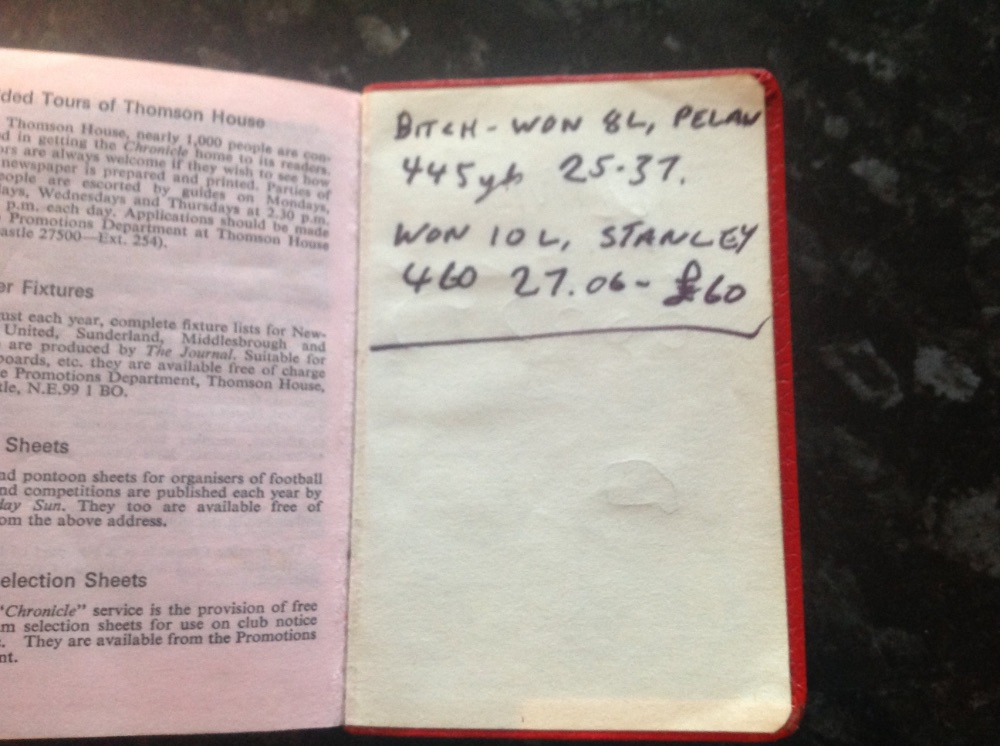 ded Tours of Thomson House
Thomson House, nearly 1,000 people are con-
d in getting the Chronicle home to its readers.
ors are always welcome if they wish to see how
newspaper is prepared and printed. Parties of
eople are escorted by guides on Mondays,
days, Wednesdays and Thursdays at 2.30 p.m.
p.m. each day. Applications should be made
Promotions Department at Thomson House
astle 27500—Ext. 254).
er Fixtures
ust each year, complete fixture lists for New-
United, Sunderland, Middlesbrough and
are produced by The Journal. Suitable for
boards, etc. they are available free of charge
e Promotions Department, Thomson House,
tle, N.E.99 1 BO.
Sheets
nd pontoon sheets for organisers of football
nd competitions are published each year by
day Sun. They too are available free of
om the above address.
election Sheets
"Chronicle" service is the provision of free
m selection sheets for use on club notice
. They are available from the Promotions
nt.
BITCH - WON 8L, PELAW
445yds 25.37.
WON 10L, STANLEY
460 27.06 - £60